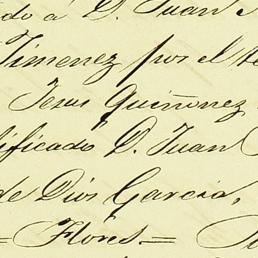 do á D. Juan
Jimenez por el te
Jesus Quiñonez
dificado D. Juan
de Dios Garcia,
= Flores. =